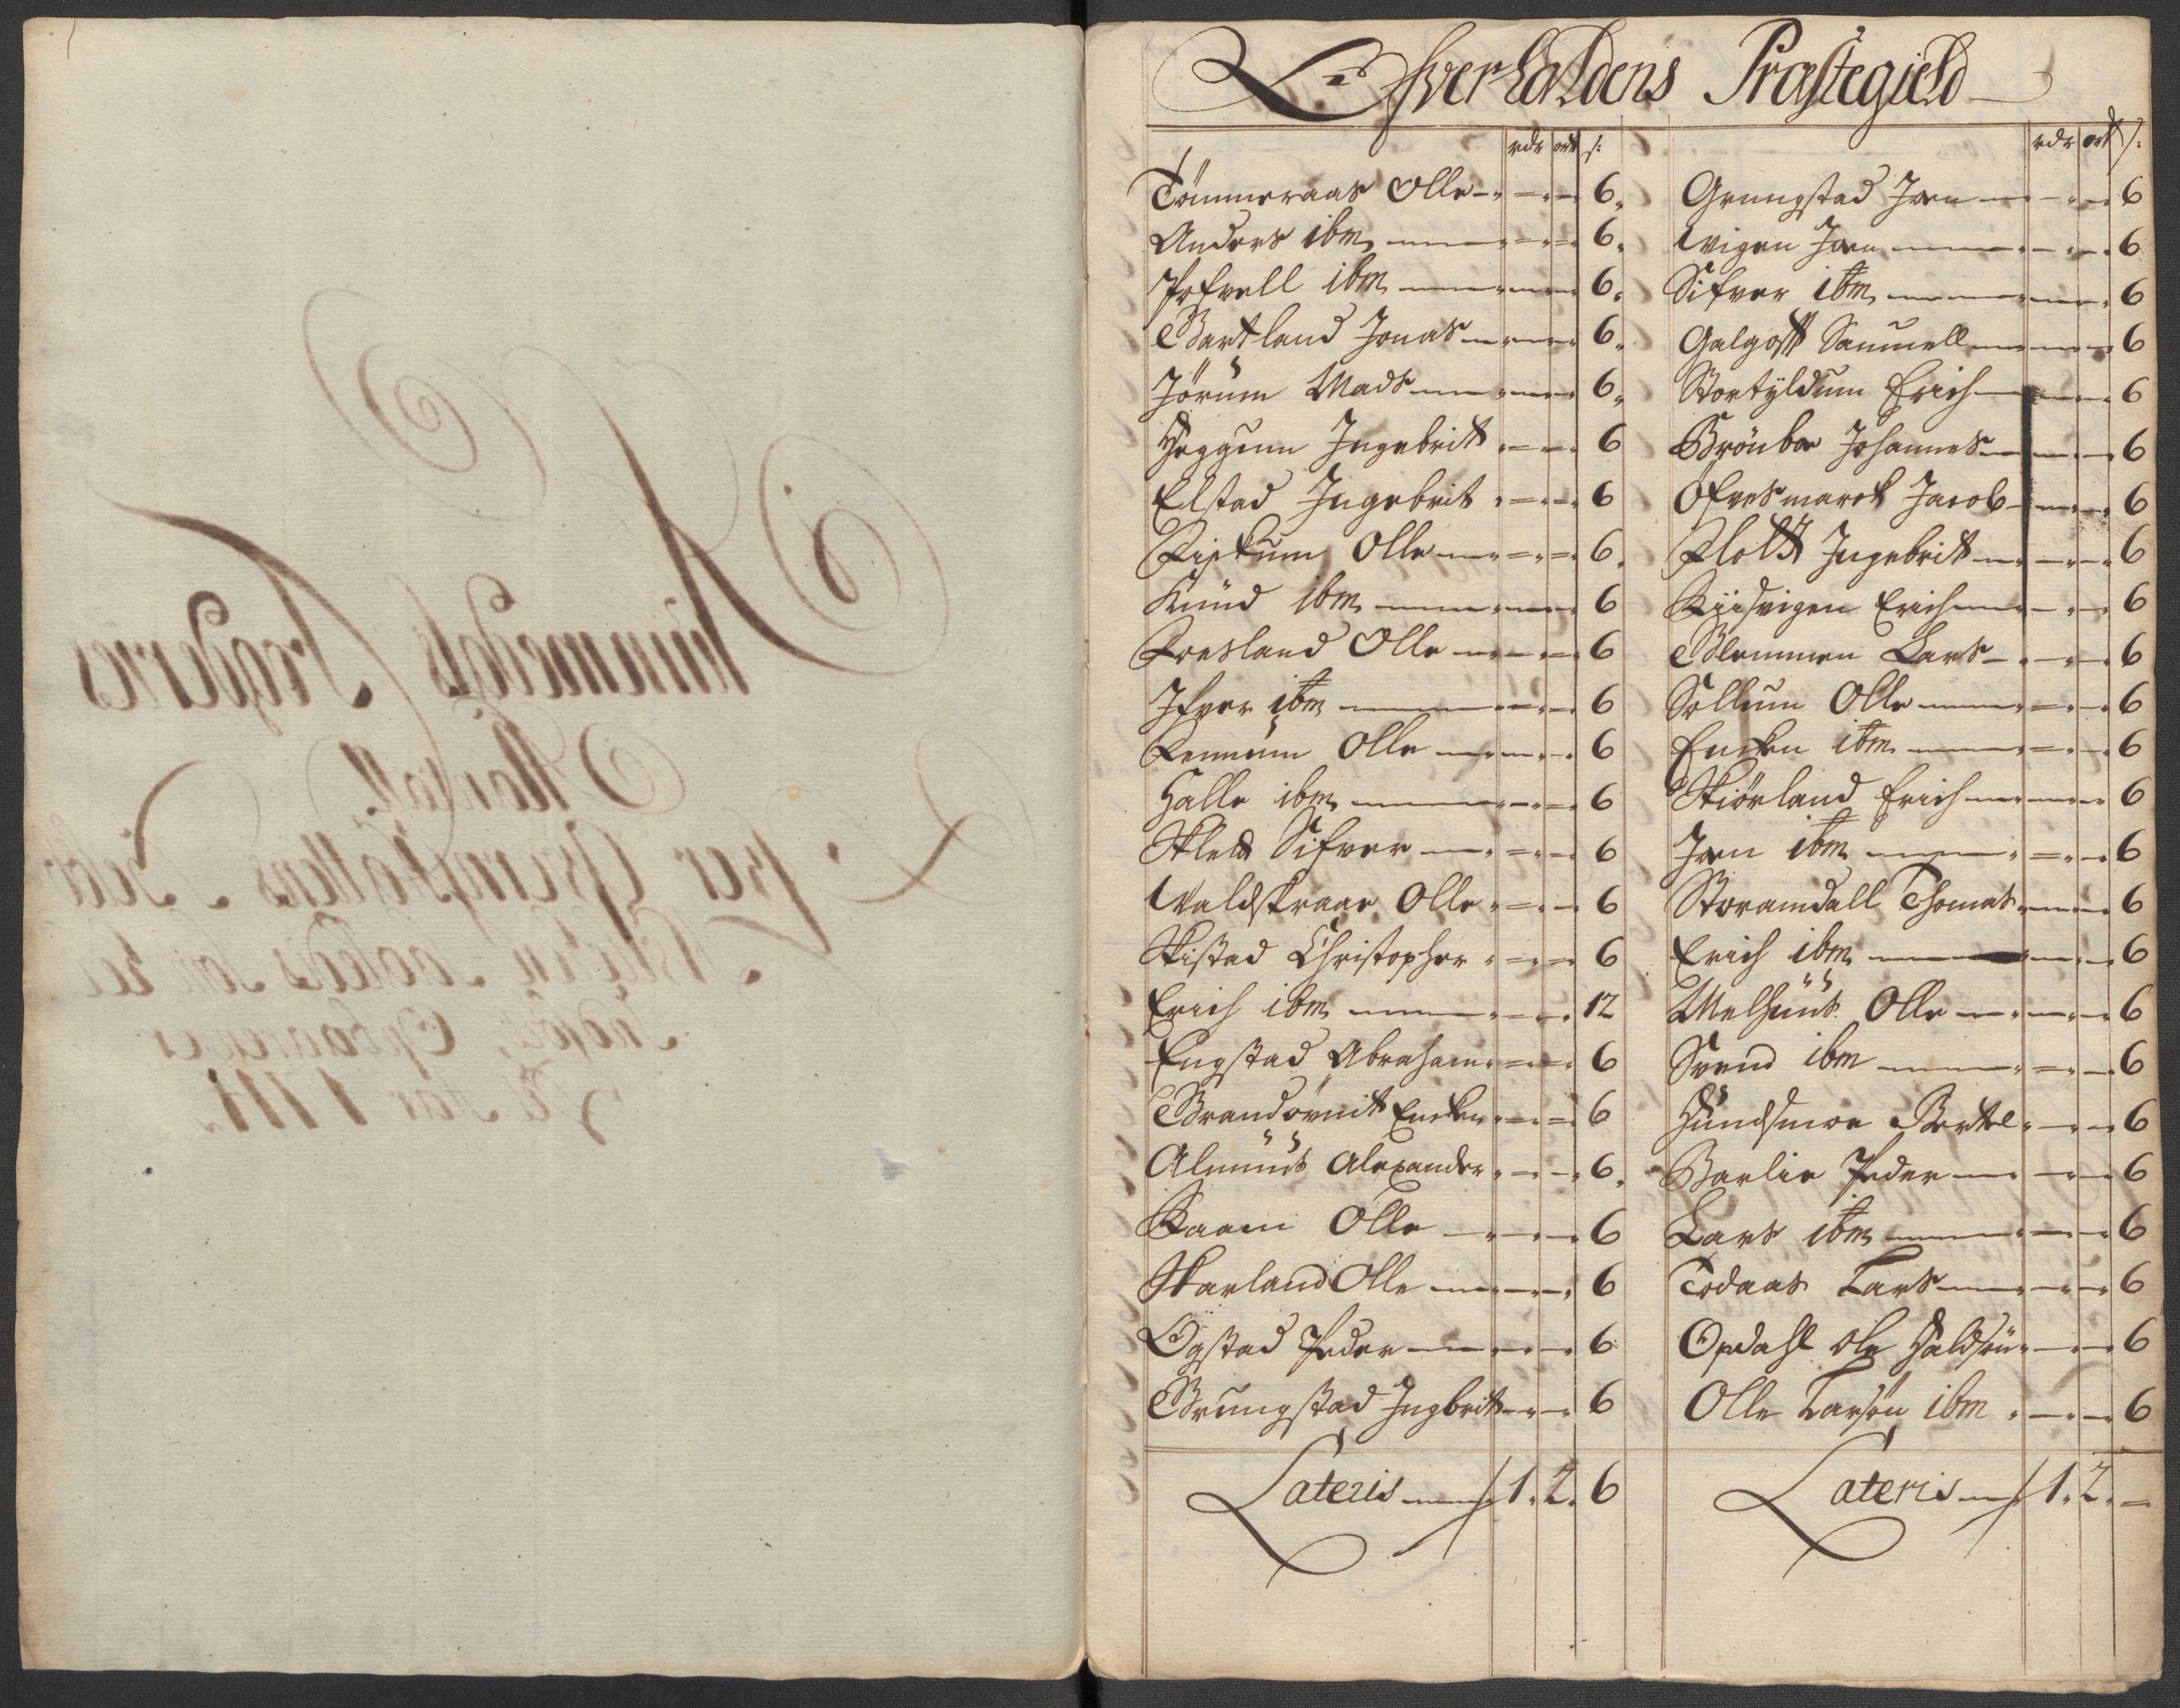 Ofverhaldens Præstegield
rdr ort s:
Tømmeraas Olle 6
Anders ibm 6
Pofvell ibm 6
Bartland Jonas 6
Jørum Mads 6
Heggum Ingebrit 6
Elstad Ingebrit 6
Fiskum Olle 6
Knud ibm 6
Fosland Olle 6
Ifver ibm 6
Remmum Olle 6
Halle ibm 6
Klett Sifver 6
Valdskraae Olle 6
Skistad Christopher 6
Erich ibm 12
Engstad Abraham 6
Brandøvnit Encken 6
Almuus Alexander 6
Kaam Olle 6
Skarland Olle 6
Øystad Peder 6
Grungstad Ingbrit 6
Lateris 1. 2. 6
rdr ort s:
Grungstad Joen 6
Wigen Joen 6
Sifver ibm 6
Galgoft Samuell 6
Stortyldum Erich 6
Brønboe Johannes 6
Øfvesmarck Jacob 6
Flott Ingebrit 6
Kiisvigen Erich 6
Blemmen Lars 6
Sollum Olle 6
Encken ibm 6
Skiørland Erich 6
Joen ibm 6
Storamdall Thomas 6
Erich ibm 6
Melhuus Olle 6
Svend ibm 6
Hundsmoe Bertel 6
Barlie Peder 6
Lars ibm 6
Todaas Lars 6
Opdahl Ole Haldsøn 6
Olle Larsøn ibm 6
Lateris 1. 2. =